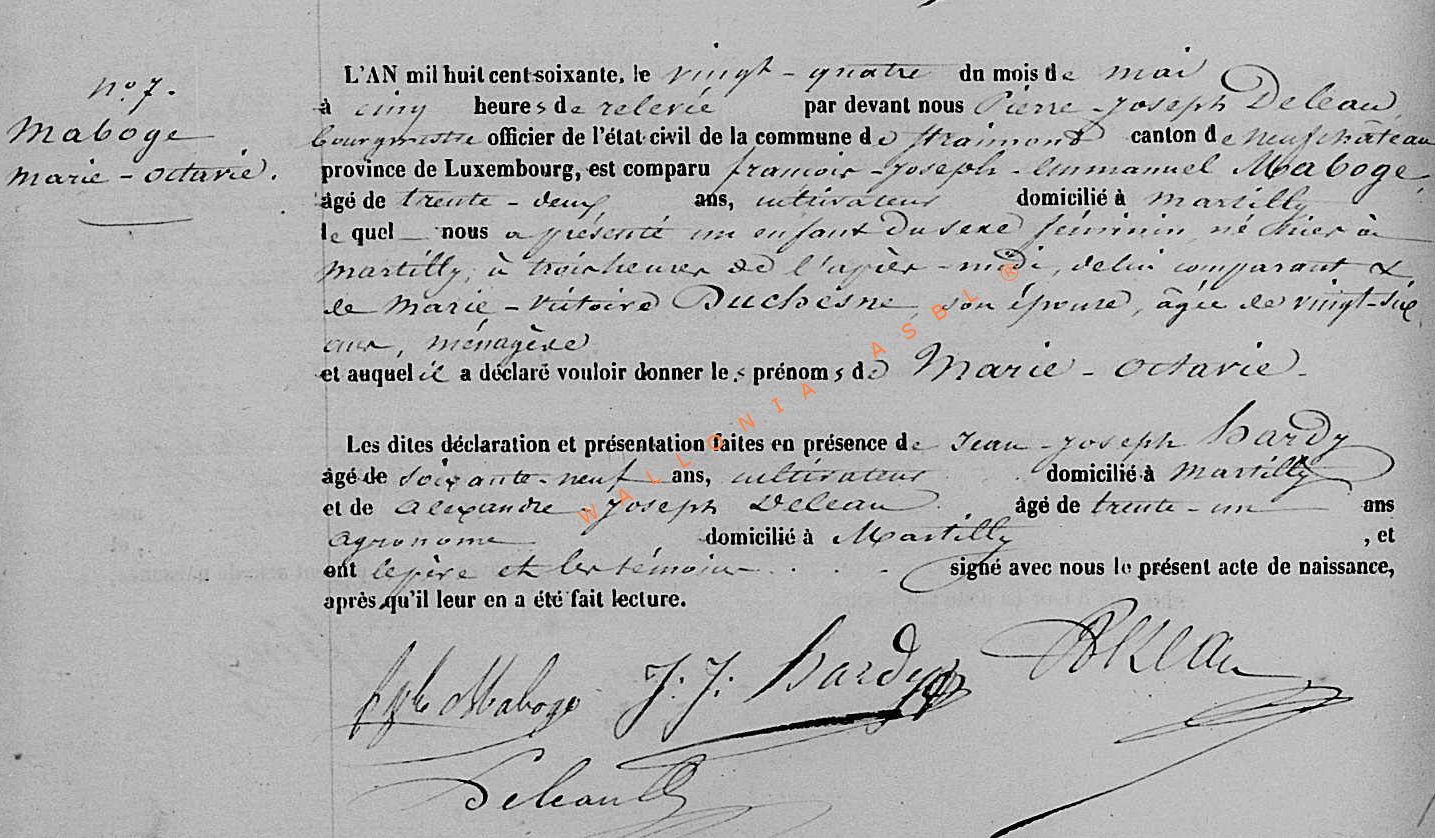 n° 7.
Maboge
Marie-octavie.
L'AN mil huit cent soixante, le vingt-quatre du mois de mai
à cinq heures de relevée par devant nous Pierre-Joseph Deleau,
bourgmestre officier de l'état civil de la commune de Straimont canton de neufchâteau
province de Luxembourg, est comparu françois-Joseph-Emmanuel Maboge,
âgé de trente-deux ans, cultivateur domicilié à Martilly
le quel nous a présenté un enfant du sexe féminin, né hier à
Martilly, à trois heures de l'après-midi, de lui comparant &
de Marie-Victoire Duchêsne, son épouse, âgée de vingt-six
ans, ménagère
et auquel il a déclaré vouloir donner les prénoms de Marie-octavie-
Les dites déclaration et présentation faites en présence de Jean-Joseph Hardy
âgé de soixante-neuf ans, cultivateur domicilié à Martilly
et de Alexandre-Joseph Deleau âgé de trente-un ans
agronome domicilié à Martilly , et
ont le père et les témoins signé avec nous le présent acte de naissance,
après qu'il leur en a été fait lecture.
Maboge J: J: Hardy
Deleau
WALLONIA ASBL ®